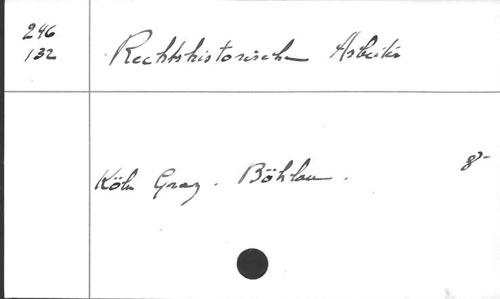 246
132
Rechtshistorische Arbeiten
Köln Graz. Böhlau.
8°